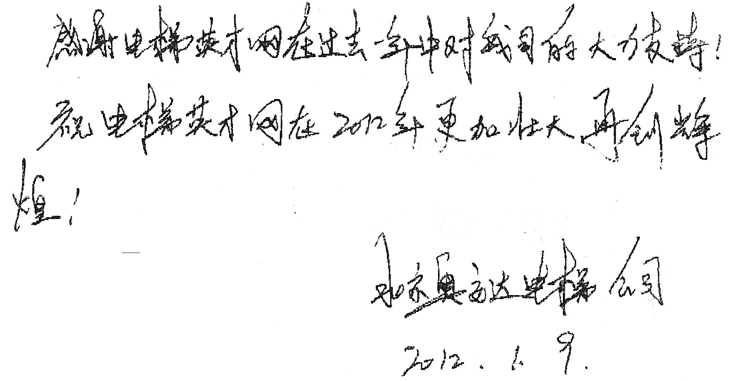 感谢电梯英才网在过去一年中对我司的大力支持!
祝电梯英才网在2012年更加壮大再创辉
煌!
北京奥方达电梯公司
2012.1.9.